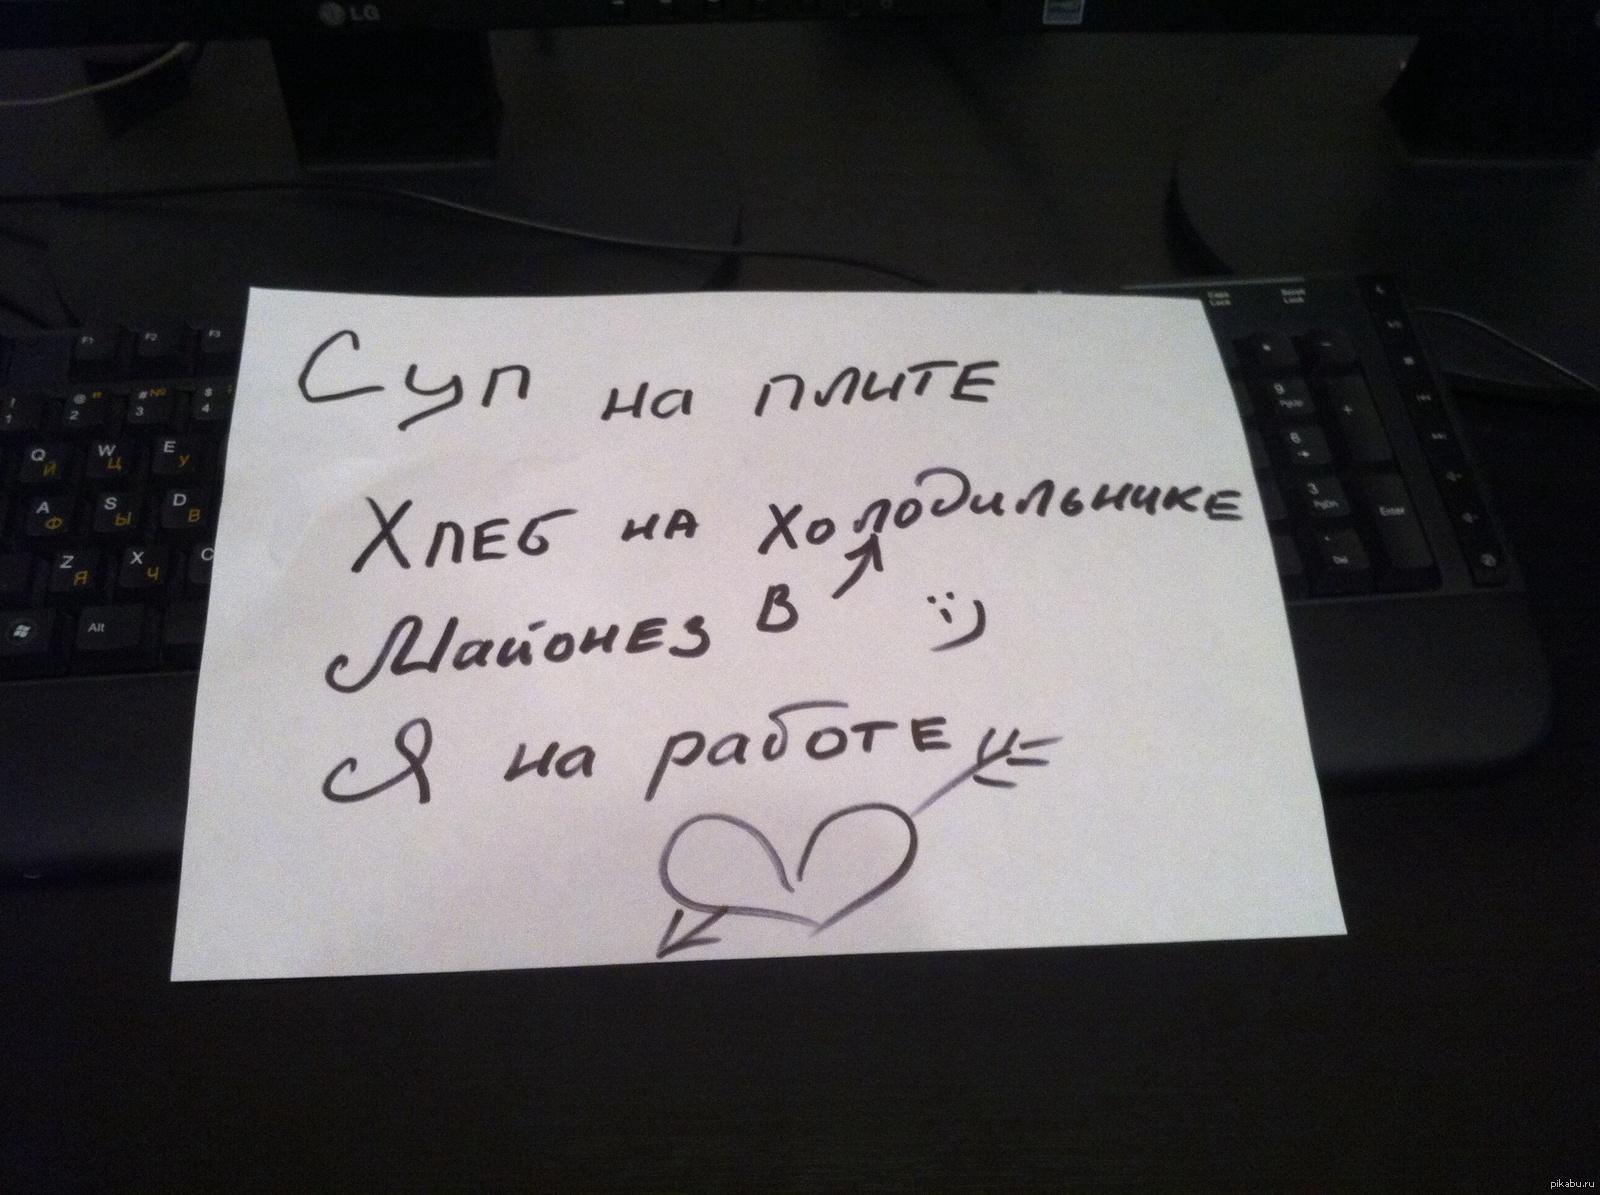 LG
Суп на плите
Хлеб на холодильнике
Майонез в ↗ :)
Я на работе
F1 F2 F3
! 1 @ " 2 # № 3 $ ; 4
Q Й W Ц E У
A Ф S Ы D В
Z Я X Ч C
Alt
Caps Lock Scroll Lock
9 PgUp
6
3 PgDn
Enter
Del
pikabu.ru